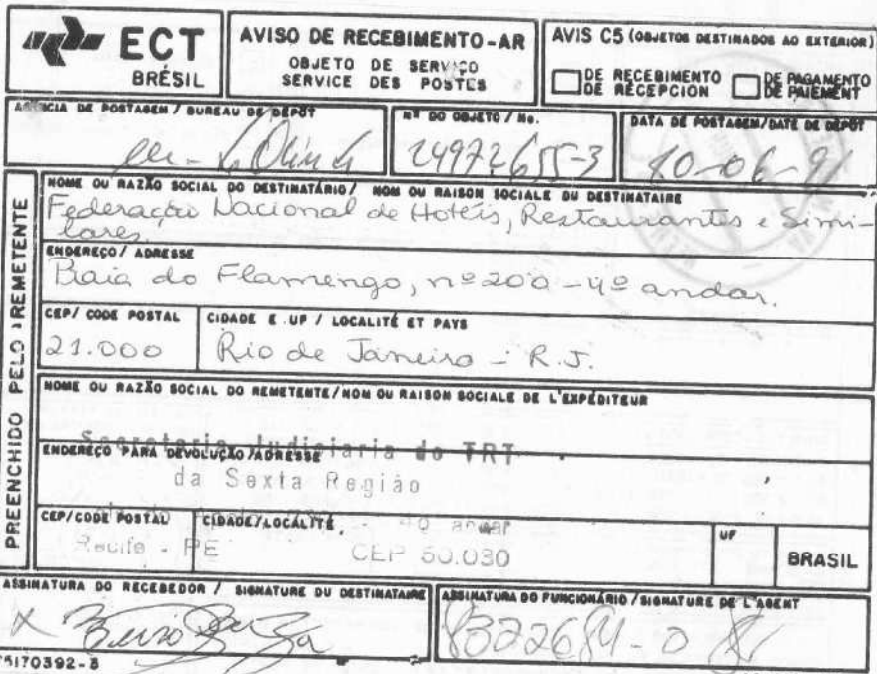 ECT
BRÉSIL
AVISO DE RECEBIMENTO-AR
OBJETO DE SERVIÇO
SERVICE DES POSTES
AVIS C5 (OBJETOS DESTINADOS AO EXTERIOR)
DE RECEBIMENTO
DE RÉCEPCION
DE PAGAMENTO
DE PAIEMENT
AGENCIA DE POSTAGEM / BUREAU DE DÉPÔT
Nº DO OBJETO / No.
24972655-3
DATA DE POSTAGEM/DATE DE DÉPÔT
10-06-91
PREENCHIDO PELO REMETENTE
NOME OU RAZÃO SOCIAL DO DESTINATÁRIO/ NOM OU RAISON SOCIALE DU DESTINATAIRE
Federação Nacional de Hotéis, Restaurantes e Simi-
lares.
ENDEREÇO/ ADRESSE
Praia do Flamengo, nº 200 - 4º andar.
CEP/ CODE POSTAL
21.000
CIDADE E UF / LOCALITÉ ET PAYS
Rio de Janeiro - R.J.
NOME OU RAZÃO SOCIAL DO REMETENTE/NOM OU RAISON SOCIALE DE L'EXPÉDITEUR
Secretaria Judiciaria do TRT
ENDEREÇO PARA DEVOLUÇÃO/ADRESSE
da Sexta Região
CEP/CODE POSTAL
CIDADE/LOCALITÉ
4º andar
Recife - PE
CEP 50.030
UF
BRASIL
ASSINATURA DO RECEBEDOR / SIGNATURE DU DESTINATAIRE
ASSINATURA DO FUNCIONÁRIO / SIGNATURE DE L'AGENT
X
8322684-0
75170392-8